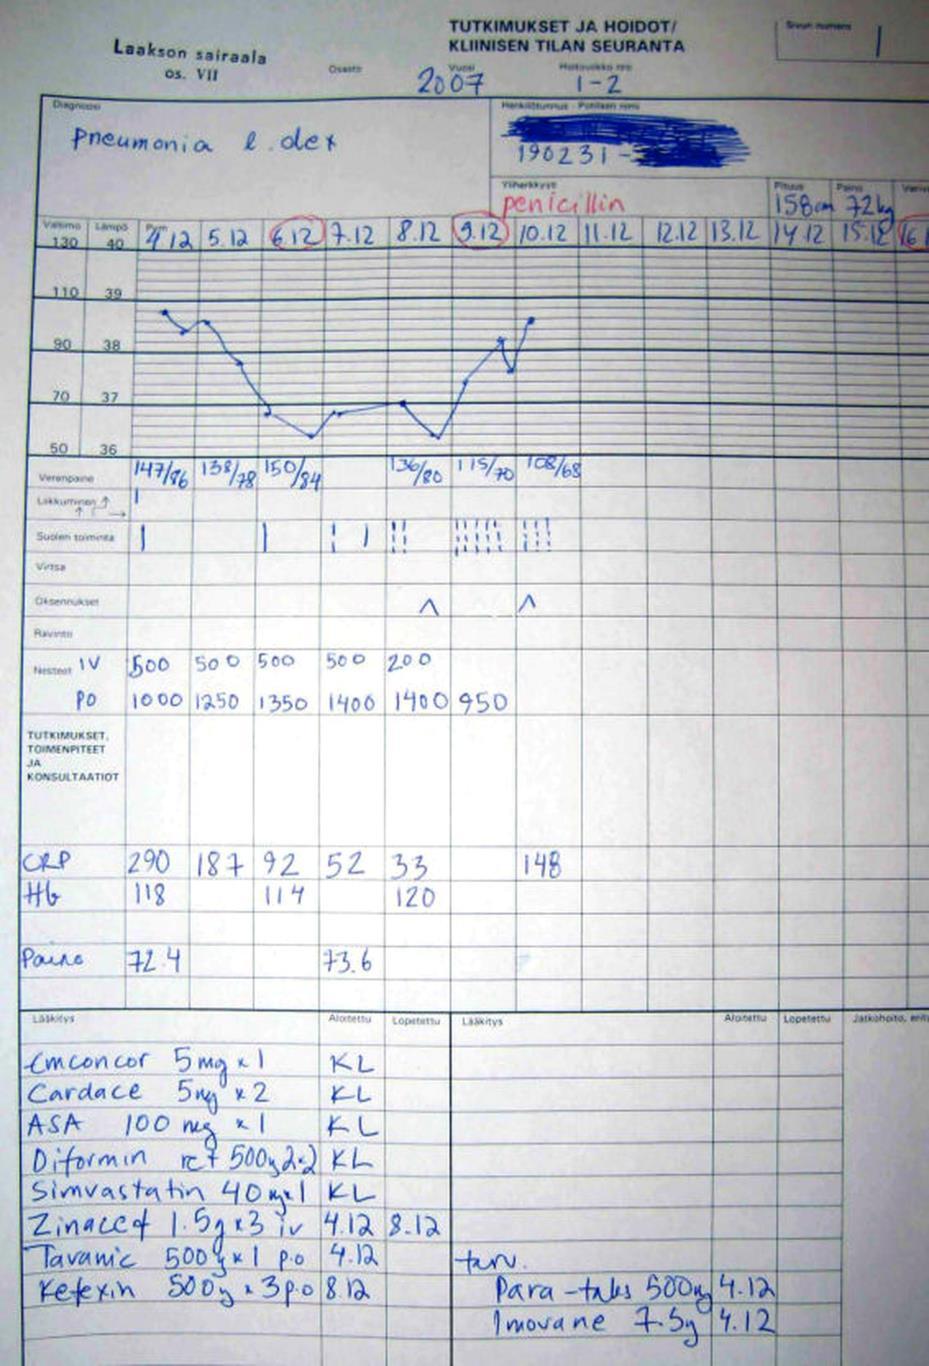 TUTKIMUKSET JA HOIDOT/
KLIINISEN TILAN SEURANTA
Sivun numero 1
Laakson sairaala
os. VII
Osasto
Vuosi
2007
Hoitoviikko nro
1-2
Diagnoosi
Pneumonia l. dex
Henkilötunnus - Potilaan nimi
190231 -
Yliherkkyys
penicillin
Pituus
158cm
Paino
72kg
Valtimo Lämpö Pvm 4.12 5.12 6.12 7.12 8.12 9.12 10.12 11.12 12.12 13.12 14.12 15.12
130 40
110 39
90 38
70 37
50 36
Verenpaine 147/86 138/78 150/84 136/80 115/70 108/68
Liikkuminen
Suolen toiminta
Virtsa
Oksennukset
Ravinto
Nesteet IV 500 500 500 500 200
PO 1000 1250 1350 1400 1400 950
TUTKIMUKSET,
TOIMENPITEET
JA
KONSULTAATIOT
CRP 290 187 92 52 33 148
Hb 118 114 120
Paino 72.4 73.6
Lääkitys Aloitettu Lopetettu Lääkitys Aloitettu Lopetettu Jatkohoito,
Emconcor 5mg x 1 KL
Cardace 5mg x 2 KL
ASA 100 mg x 1 KL
Diformin ret 500g 2x2 KL
Simvastatin 40mgx1 KL
Zinacef 1.5g x 3 iv 4.12 8.12
Tavanic 500g x 1 p.o 4.12 tarv.
Kefexin 500g x 3 p.o 8.12 Para-tabs 500mg 4.12
Imovane 7.5g 4.12